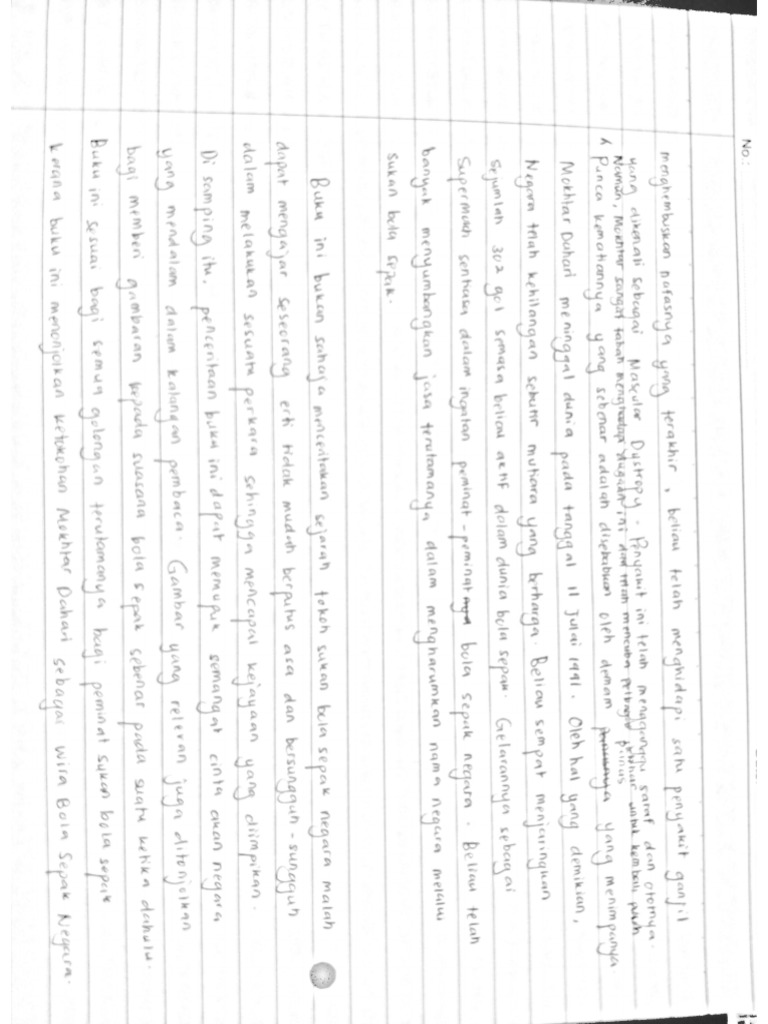 No.:
menghembuskan nafasnya yang terakhir, beliau telah menghidapi satu penyakit ganjil
yang dikenali sebagai Mascular Dystropy. Penyakit ini telah mengganggu saraf dan ototnya.
Namun, Mokhtar sangat tabah menghadapi dugaan ini dan telah mencuba untuk kembali pulih
Punca kematiannya yang sebenar adalah disebabkan oleh demam yang menimpanya
Mokhtar Dahari meninggal dunia pada tanggal 11 Julai 1991. Oleh hal yang demikian,
Negara telah kehilangan sebutir mutiara yang berharga. Beliau sempat menjaringkan
sejumlah 302 gol semasa beliau aktif dalam dunia bola sepak. Gelarannya sebagai
Supermokh sentiasa dalam ingatan peminat-peminat bola sepak negara. Beliau telah
banyak menyumbangkan jasa terutamanya dalam mengharumkan nama negara melalui
sukan bola sepak.
Buku ini bukan sahaja menceritakan sejarah tokoh sukan bola sepak negara malah
dapat mengajar seseorang erti tidak mudah berputus asa dan bersungguh-sungguh
dalam melakukan sesuatu perkara sehingga mencapai kejayaan yang diimpikan.
Di samping itu, penceritaan buku ini dapat memupuk semangat cinta akan negara
yang mendalam dalam kalangan pembaca. Gambar yang relevan juga ditonjolkan
bagi memberi gambaran kepada suasana bola sepak sebenar pada suatu ketika dahulu.
Buku ini sesuai bagi semua golongan terutamanya bagi peminat sukan bola sepak
kerana buku ini menonjolkan ketokohan Mokhtar Dahari sebagai Wira Bola Sepak Negara.